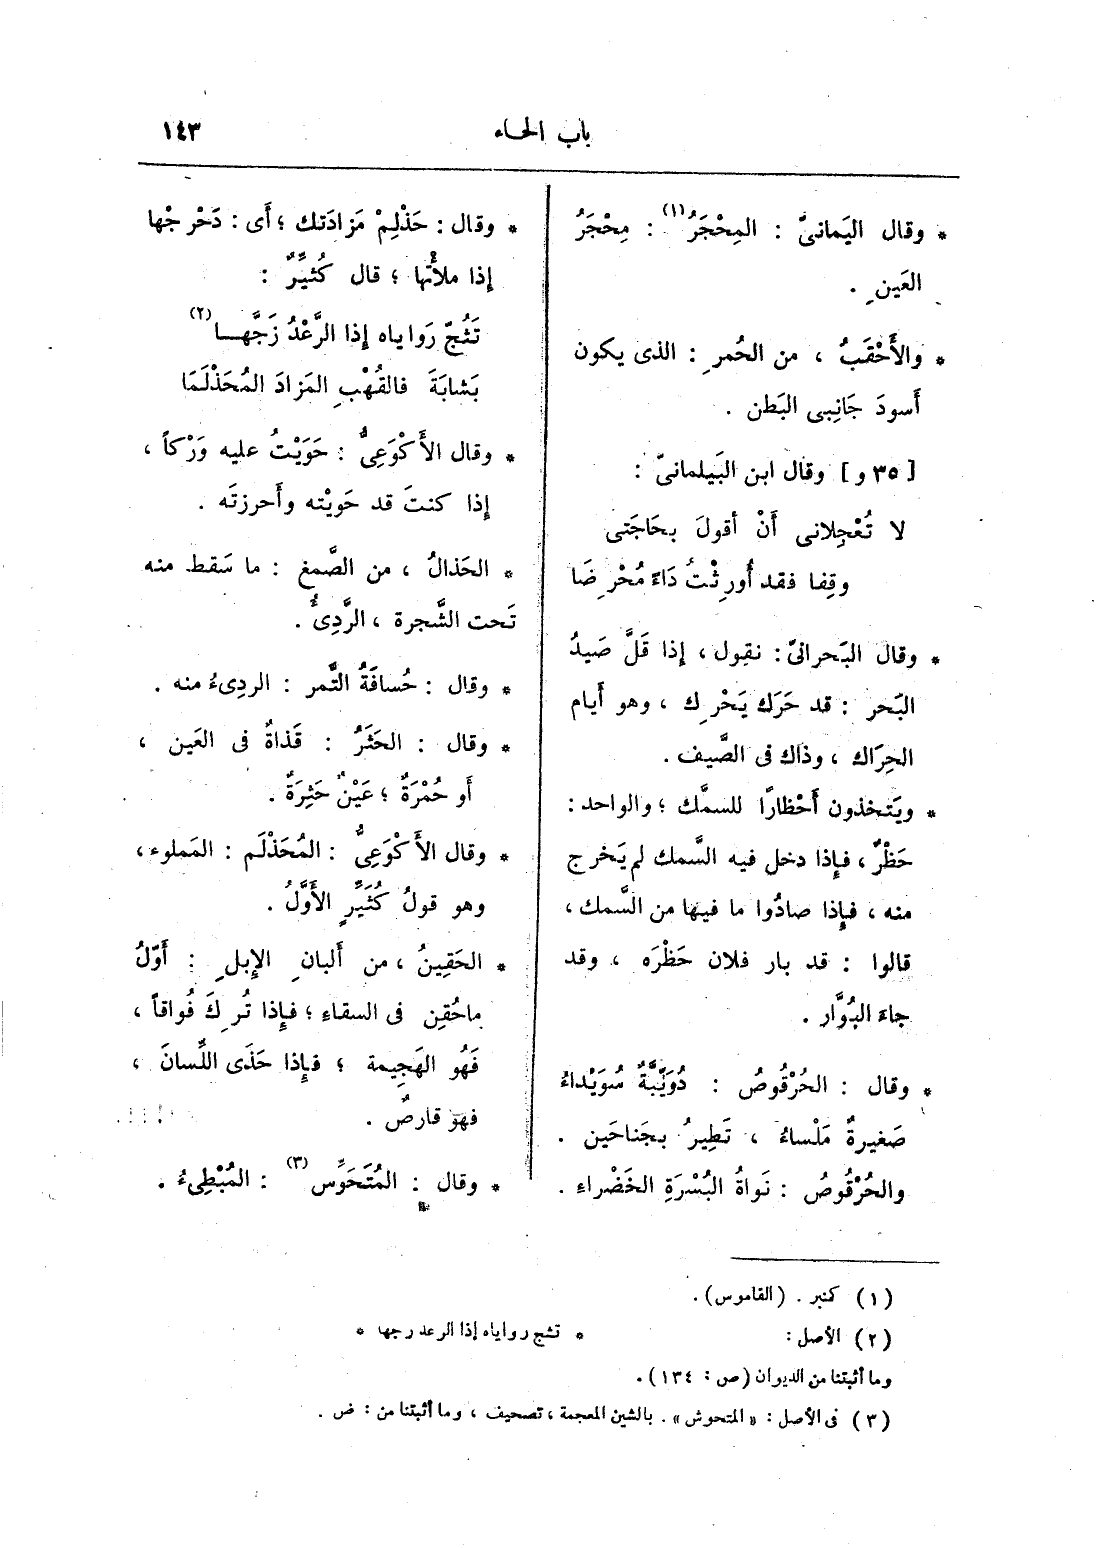 باب الحاء ١٤٣
* وقال اليَمانىّ : المِحْجَرُ(١) : مِحْجَرُ
العَينِ .
* والأَحْقَبُ ، من الحُمرِ : الذى يكون
أسودَ جَانِبى البَطن .
[ ٣٥ و ] وقال ابن البَيلمانىّ :
لا تُعْجِلانى أَنْ أقولَ بحَاجَتى
وقِفا فقد أُورِثْتُ دَاءً مُحْرِضَا
* وقال البَحرانىّ : نقول ، إذا قَلَّ صَيدُ
البَحر : قد حَرَك يَحْرِك ، وهو أَيام
الحِرَاك ، وذاك فى الصَّيف .
* ويَتخذون أَحْظارًا للسمَّك ؛ والواحد :
حَظْرٌ ، فإِذا دخل فيه السَّمك لم يَخرج
منه ، فإِذا صادُوا ما فيها من السَّمك ،
قالوا : قد بار فلان حَظْرَه ، وقد
جاءَ البُوَّار .
* وقال : الحُرْقُوصُ : دُوَيِّبةٌ سُوَيْداءُ
صَغيرةٌ مَلْساءُ ، تَطِيرُ بجَناحَين .
والحُرْقُوصُ : نَواةُ البُسْرَةِ الخَضْراءِ .
* وقال : حَذْلِمْ مَزادَتك ؛ أى : دَحْرِجْها
إذا ملأْتَها ؛ قال كُثيِّرٌ :
تَثُجّ رَواياه إِذا الرَّعْدُ زَجَّهـا(٢)
بَشابَةَ فالقُهْبِ المَزادَ المُحَذْلَمَا
* وقال الأَكْوَعِىُّ : حَوَيْتُ عليه وَرْكاً ،
إذا كنتَ قد حَويْته وأَحرزتَه .
* الحَذالُ ، من الصَّمغ : ما سَقط منه
تَحت الشَّجرة ، الرَّدِىُّ .
* وقال : حُسافَةُ التَّمر : الردِىءُ منه .
* وقال : الحَثَرُ : قَذاةٌ فى العَين ،
أو حُمْرَةٌ ؛ عَيْنٌ حَثِرَةٌ .
* وقال الأَكْوَعِىُّ : المُحَذْلَم : المَملوء ،
وهو قولُ كُثَيِّرٍ الأَوَّلُ .
* الحَقِينُ ، من أَلبانِ الإِبلِ : أَوّلُ
ماحُقِن فى السقاءِ ؛ فإِذا تُرِكَ فُواقاً ،
فَهُو الهَجِيمة ؛ فإِذا حَذَى اللِّسانَ ،
فهو قارصٌ .
* وقال : المُتَحَوِّس(٣) : المُبْطِىءُ .
(١) كنبر . (القاموس) .
(٢) الأصل : * تشج رواياه إذا الرعد رجها *
وما أثبتنا من الديوان (ص : ١٣٤) .
(٣) فى الأصل : « المتحوش » . بالشين المعجمة ، تصحيف ، وما أثبتنا من : ض .